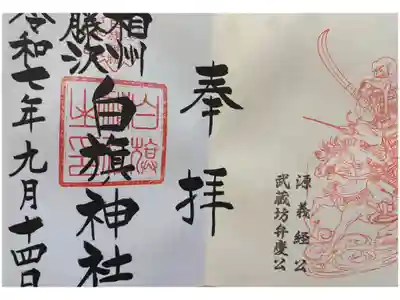 奉拝
相州
藤沢
白旗神社
令和七年九月十四日
源義経公
武蔵坊弁慶公